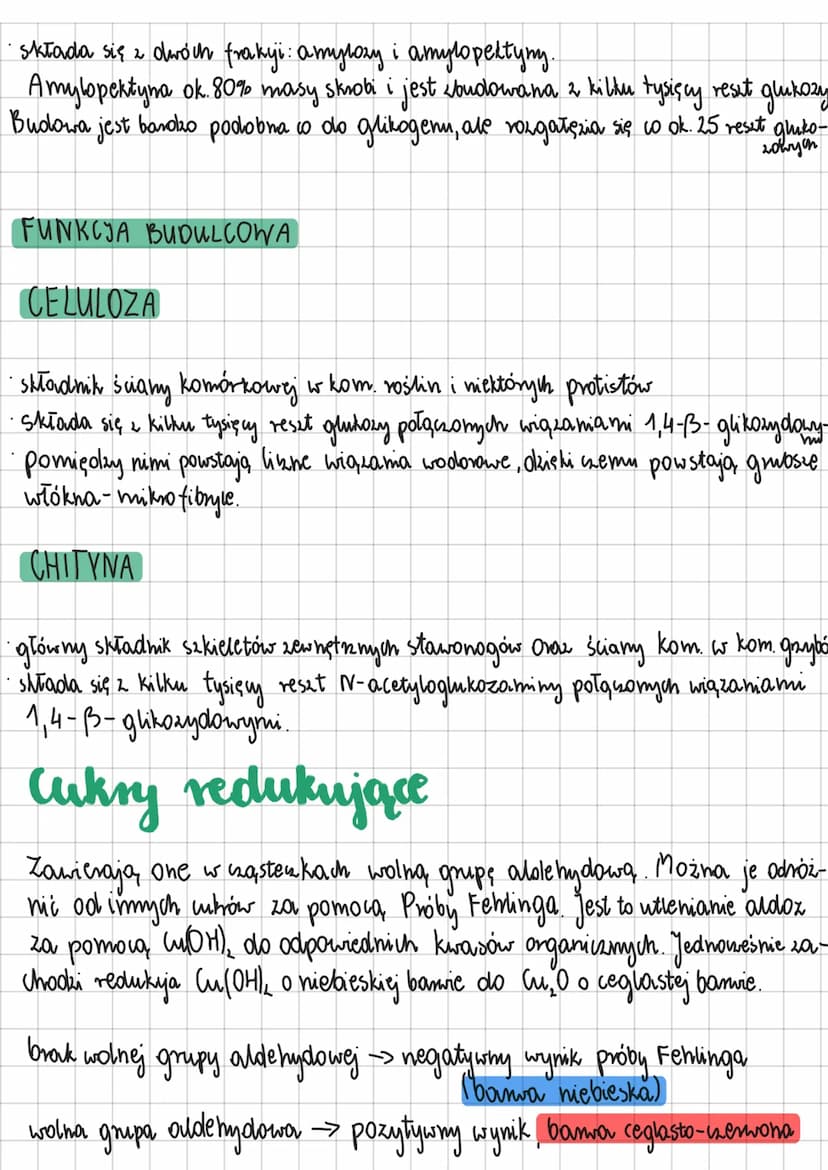 · składa się z dwóch frakcji: amylozy i amylopektyny.
Amylopektyna ok. 80% masy skrobi i jest zbudowana z kilku tysięcy reszt glukozy
Budowa jest bardzo podobna co do glikogenu, ale rozgałęzia się co ok. 25 reszt gluko-
zowych
FUNKCJA BUDULCOWA
CELULOZA
· składnik ściany komórkowej w kom. roślin i niektórych protistów
· składa się z kilku tysięcy reszt glukozy połączonych wiązaniami 1,4-β-glikozydowy-
· pomiędzy nimi powstają liczne wiązania wodorowe, dzięki czemu powstają grubsze
włókna - mikrofibryle.
CHITYNA
· główny składnik szkieletów zewnętrznych stawonogów oraz ściany kom. w kom. grzybó
· składa się z kilku tysięcy reszt N-acetyloglukozaminy połączonych wiązaniami
1,4-β-glikozydowymi.
Cukry redukujące
Zawierają one w cząsteczkach wolną grupę aldehydową. Można je odróż-
nić od innych cukrów za pomocą Próby Fehlinga. Jest to utlenianie aldoz
za pomocą Cu(OH)₂ do odpowiednich kwasów organicznych. Jednocześnie za-
chodzi redukcja Cu(OH)₂ o niebieskiej barwie do Cu₂O o ceglastej barwie.
brak wolnej grupy aldehydowej → negatywny wynik próby Fehlinga
(barwa niebieska)
wolna grupa aldehydowa → pozytywny wynik, barwa ceglasto-czerwona